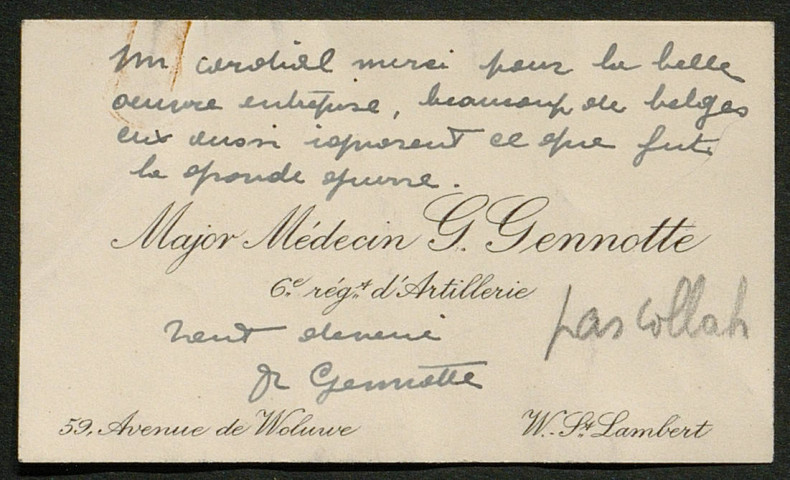 Un cordial merci pour la belle
oeuvre entreprise, beaucoup de belges
eux aussi ignorent ce que fut
la grande guerre.
Major Médecin G. Gennotte
6e. régt. d'Artillerie
pas collab
Dr Gennotte
59, Avenue de Woluwe W. St. Lambert